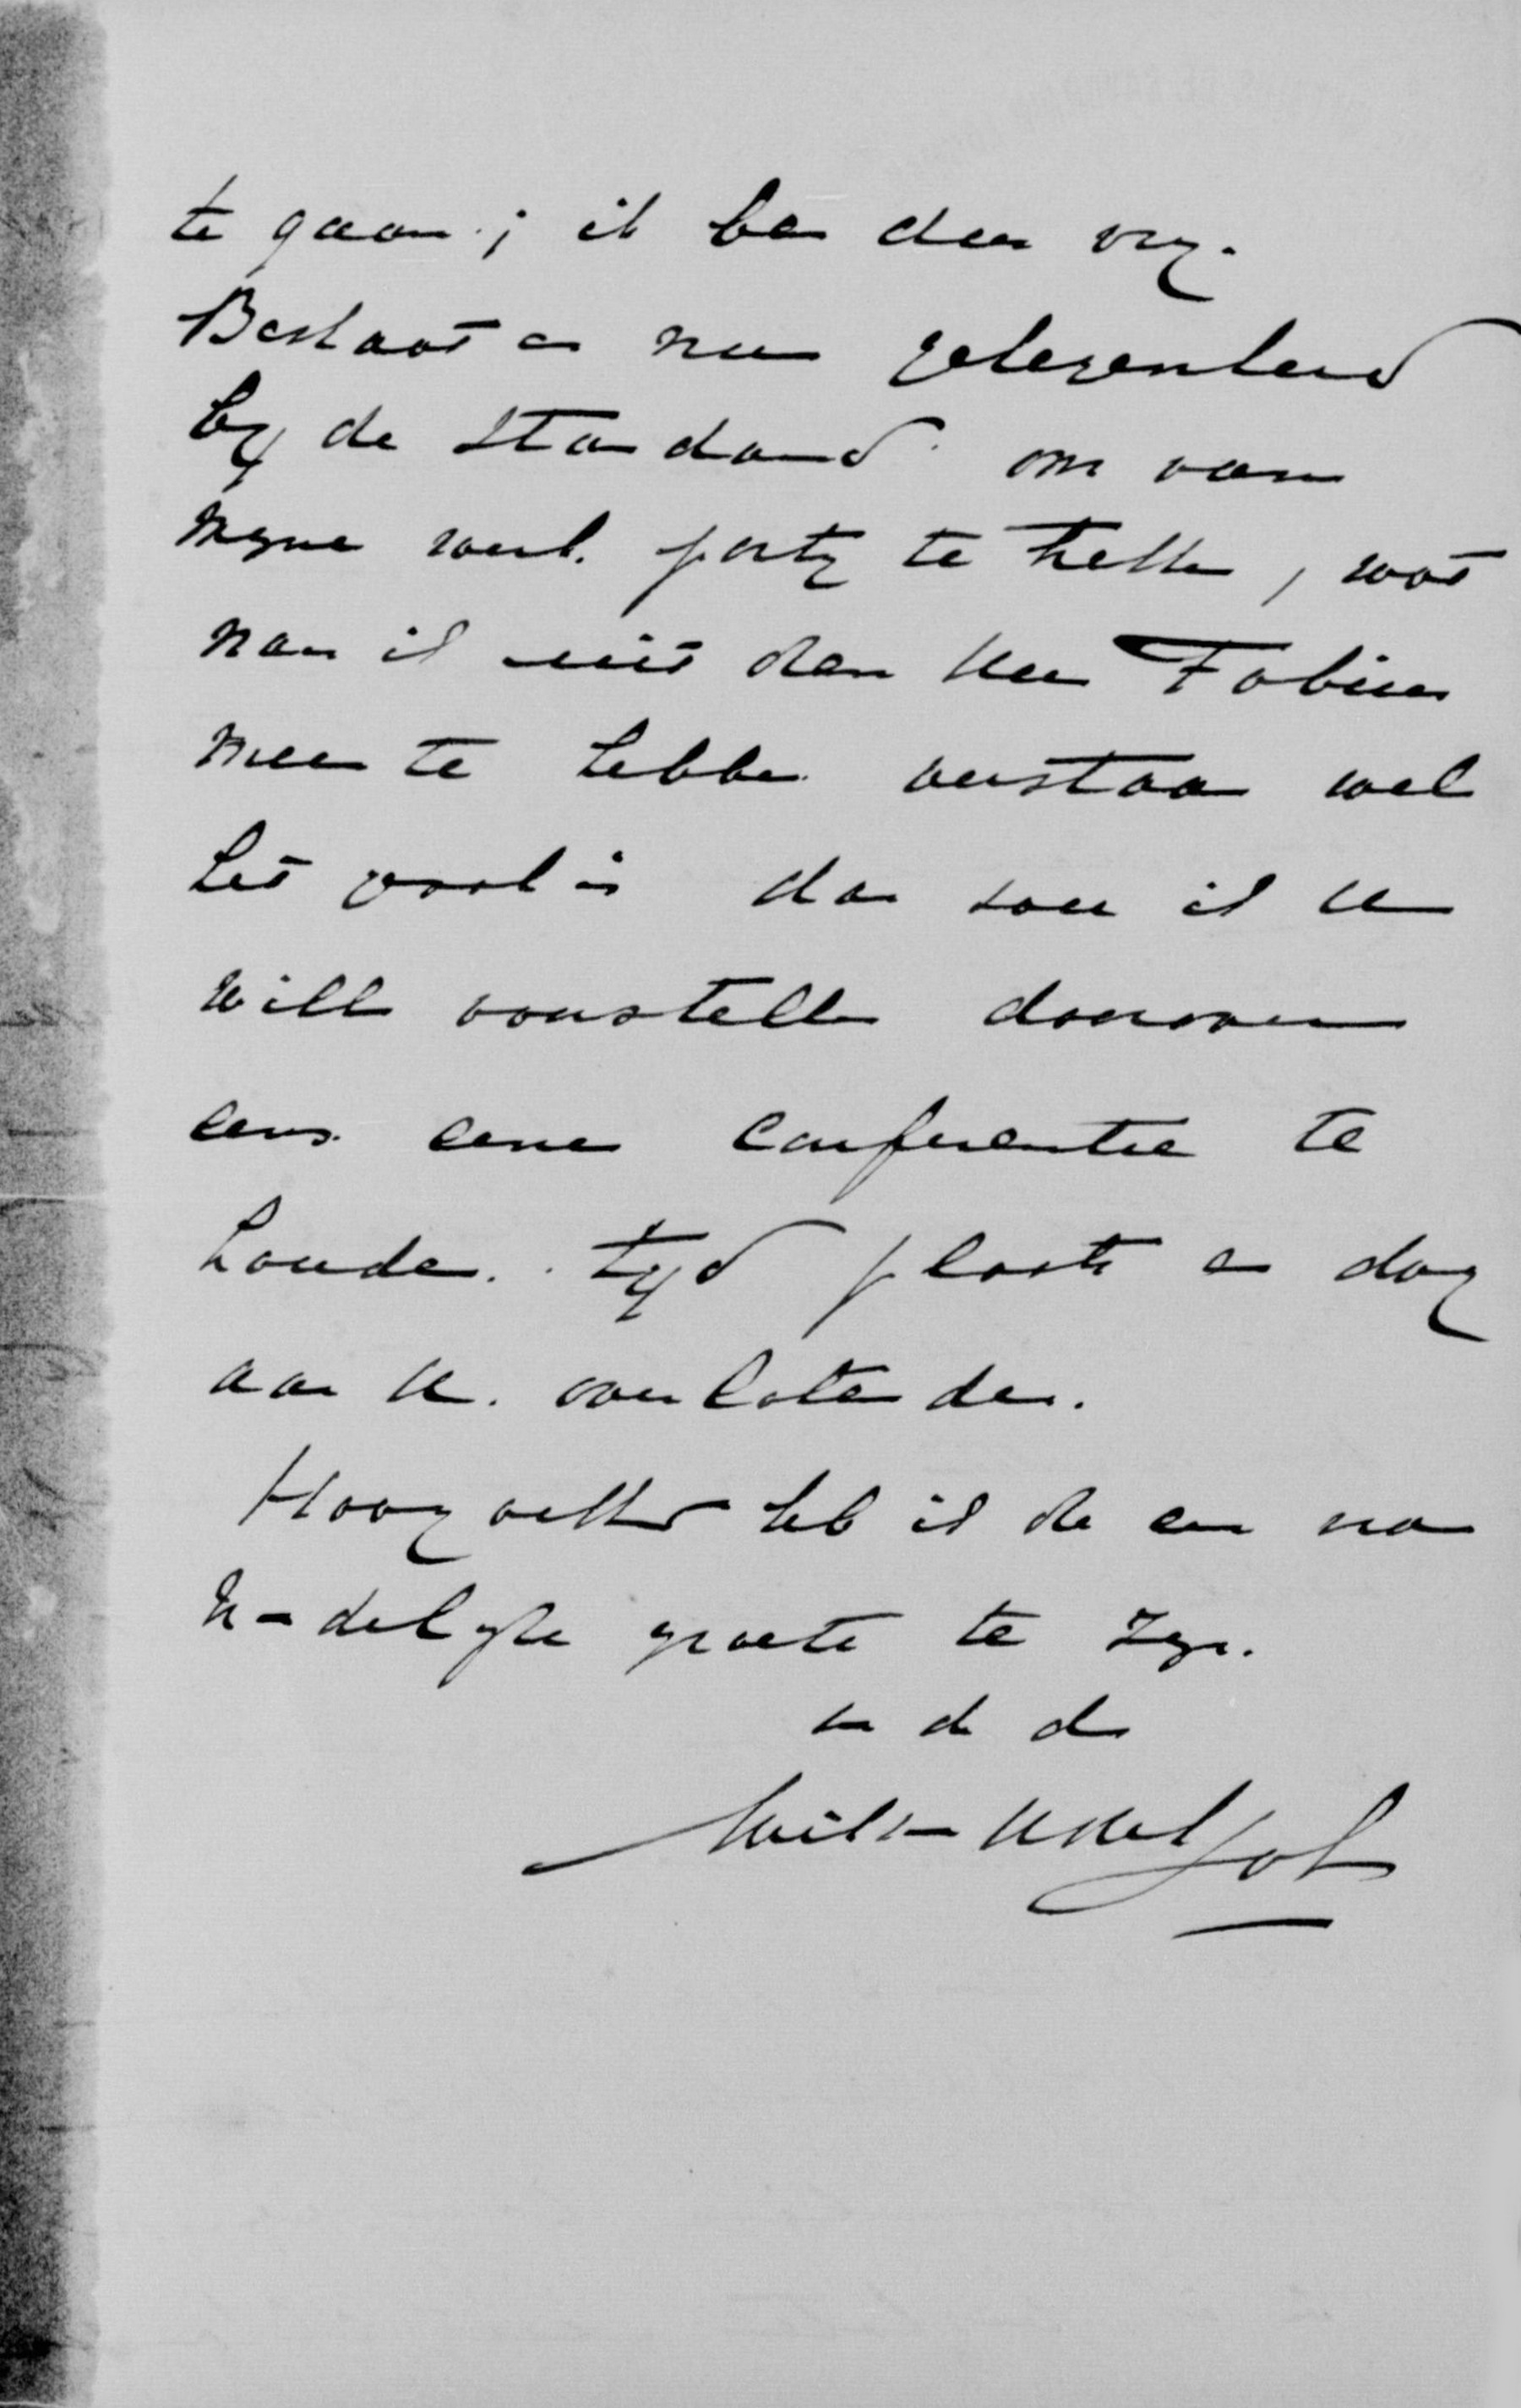 te gaan; ik ben dan vrij.
Bestaat er nu gelegenheid
bij de Standaard om van
mijne werk. partij te trekken, wat
naar ik uit den Heer Fabius
meen te hebben verstaan wel
het geval is dan zou ik u
willen voorstellen daarover
eens eene conferentie te
houden. tijd plaats en dag
aan U. overlatende.
Hoogachtend heb ik de eer na
vriendelijke groete te zijn.
uw d d